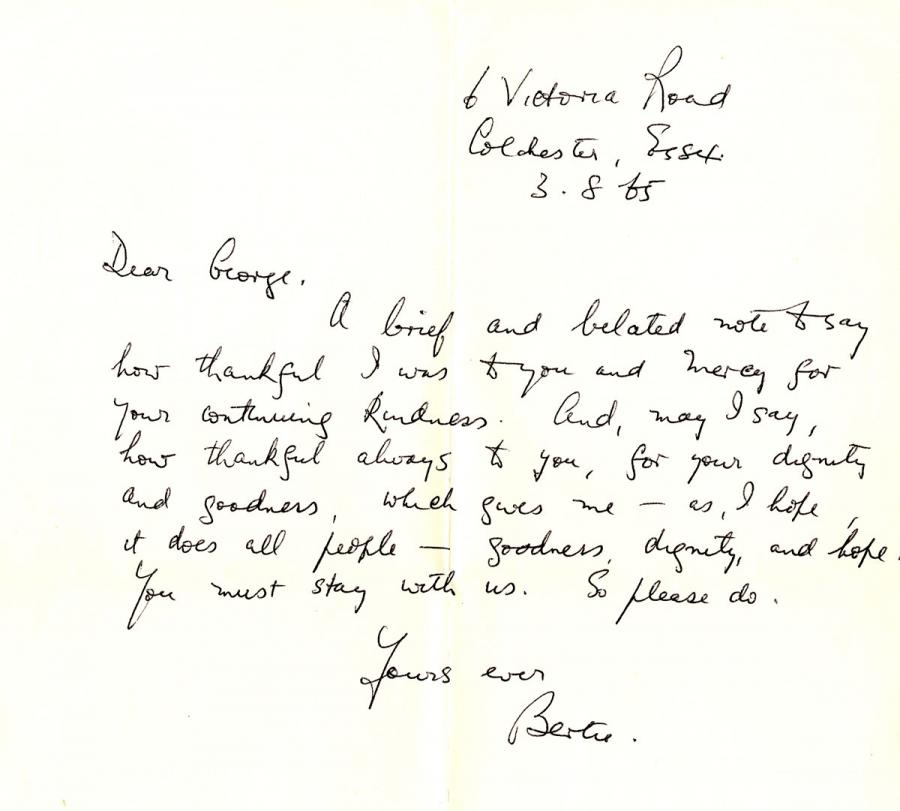 6 Victoria Road
Colchester, Essex.
3.8 65
Dear George.
A brief and belated note to say
how thankful I was to you and Mercy for
your continuing kindness. And, may I say,
how thankful always to you, for your dignity
and goodness, which gives me — as, I hope,
it does all people — goodness, dignity, and hope.
You must stay with us. So please do.
Yours ever
Bertie.